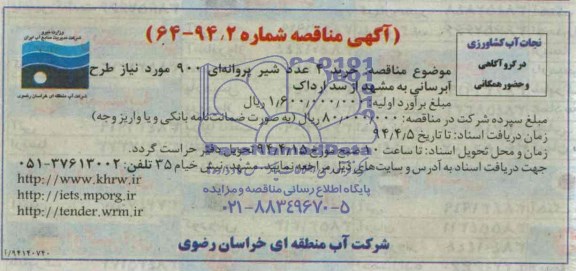 (آگهی مناقصه شماره ۹۴،۲-۶۴)
نجات آب کشاورزی
در گرو آگاهی
و حضور همگانی
وزارت نیرو
شرکت مدیریت منابع آب ایران
شرکت آب منطقه ای خراسان رضوی
موضوع مناقصه: خرید ۲ عدد شیر پروانه‌ای ۹۰۰ مورد نیاز طرح
آبرسانی به مشهد از سد ارداک
مبلغ برآورد اولیه: ۱/۶۰۰/۰۰۰/۰۰۰ ریال
مبلغ سپرده شرکت در مناقصه: ۸۰/۰۰۰/۰۰۰ ریال (به صورت ضمانت‌نامه بانکی و یا واریز وجه)
زمان دریافت اسناد: تا تاریخ ۹۴/۴/۵
زمان و محل تحویل اسناد: تا ساعت ۱۰ صبح مورخ ۹۴/۴/۱۵ تحویل دفتر حراست گردد.
جهت دریافت اسناد به آدرس و سایت‌های ذیل مراجعه نمایید. مشهد، نبش خیام ۳۵ تلفن: ۳۷۶۱۳۰۰۲-۰۵۱
http://www.khrw.ir
http://iets.mporg.ir
http://tender.wrm.ir
پایگاه اطلاع رسانی مناقصه و مزایده
۰۲۱-۸۸۳۴۹۶۷۰-۵
شرکت آب منطقه ای خراسان رضوی